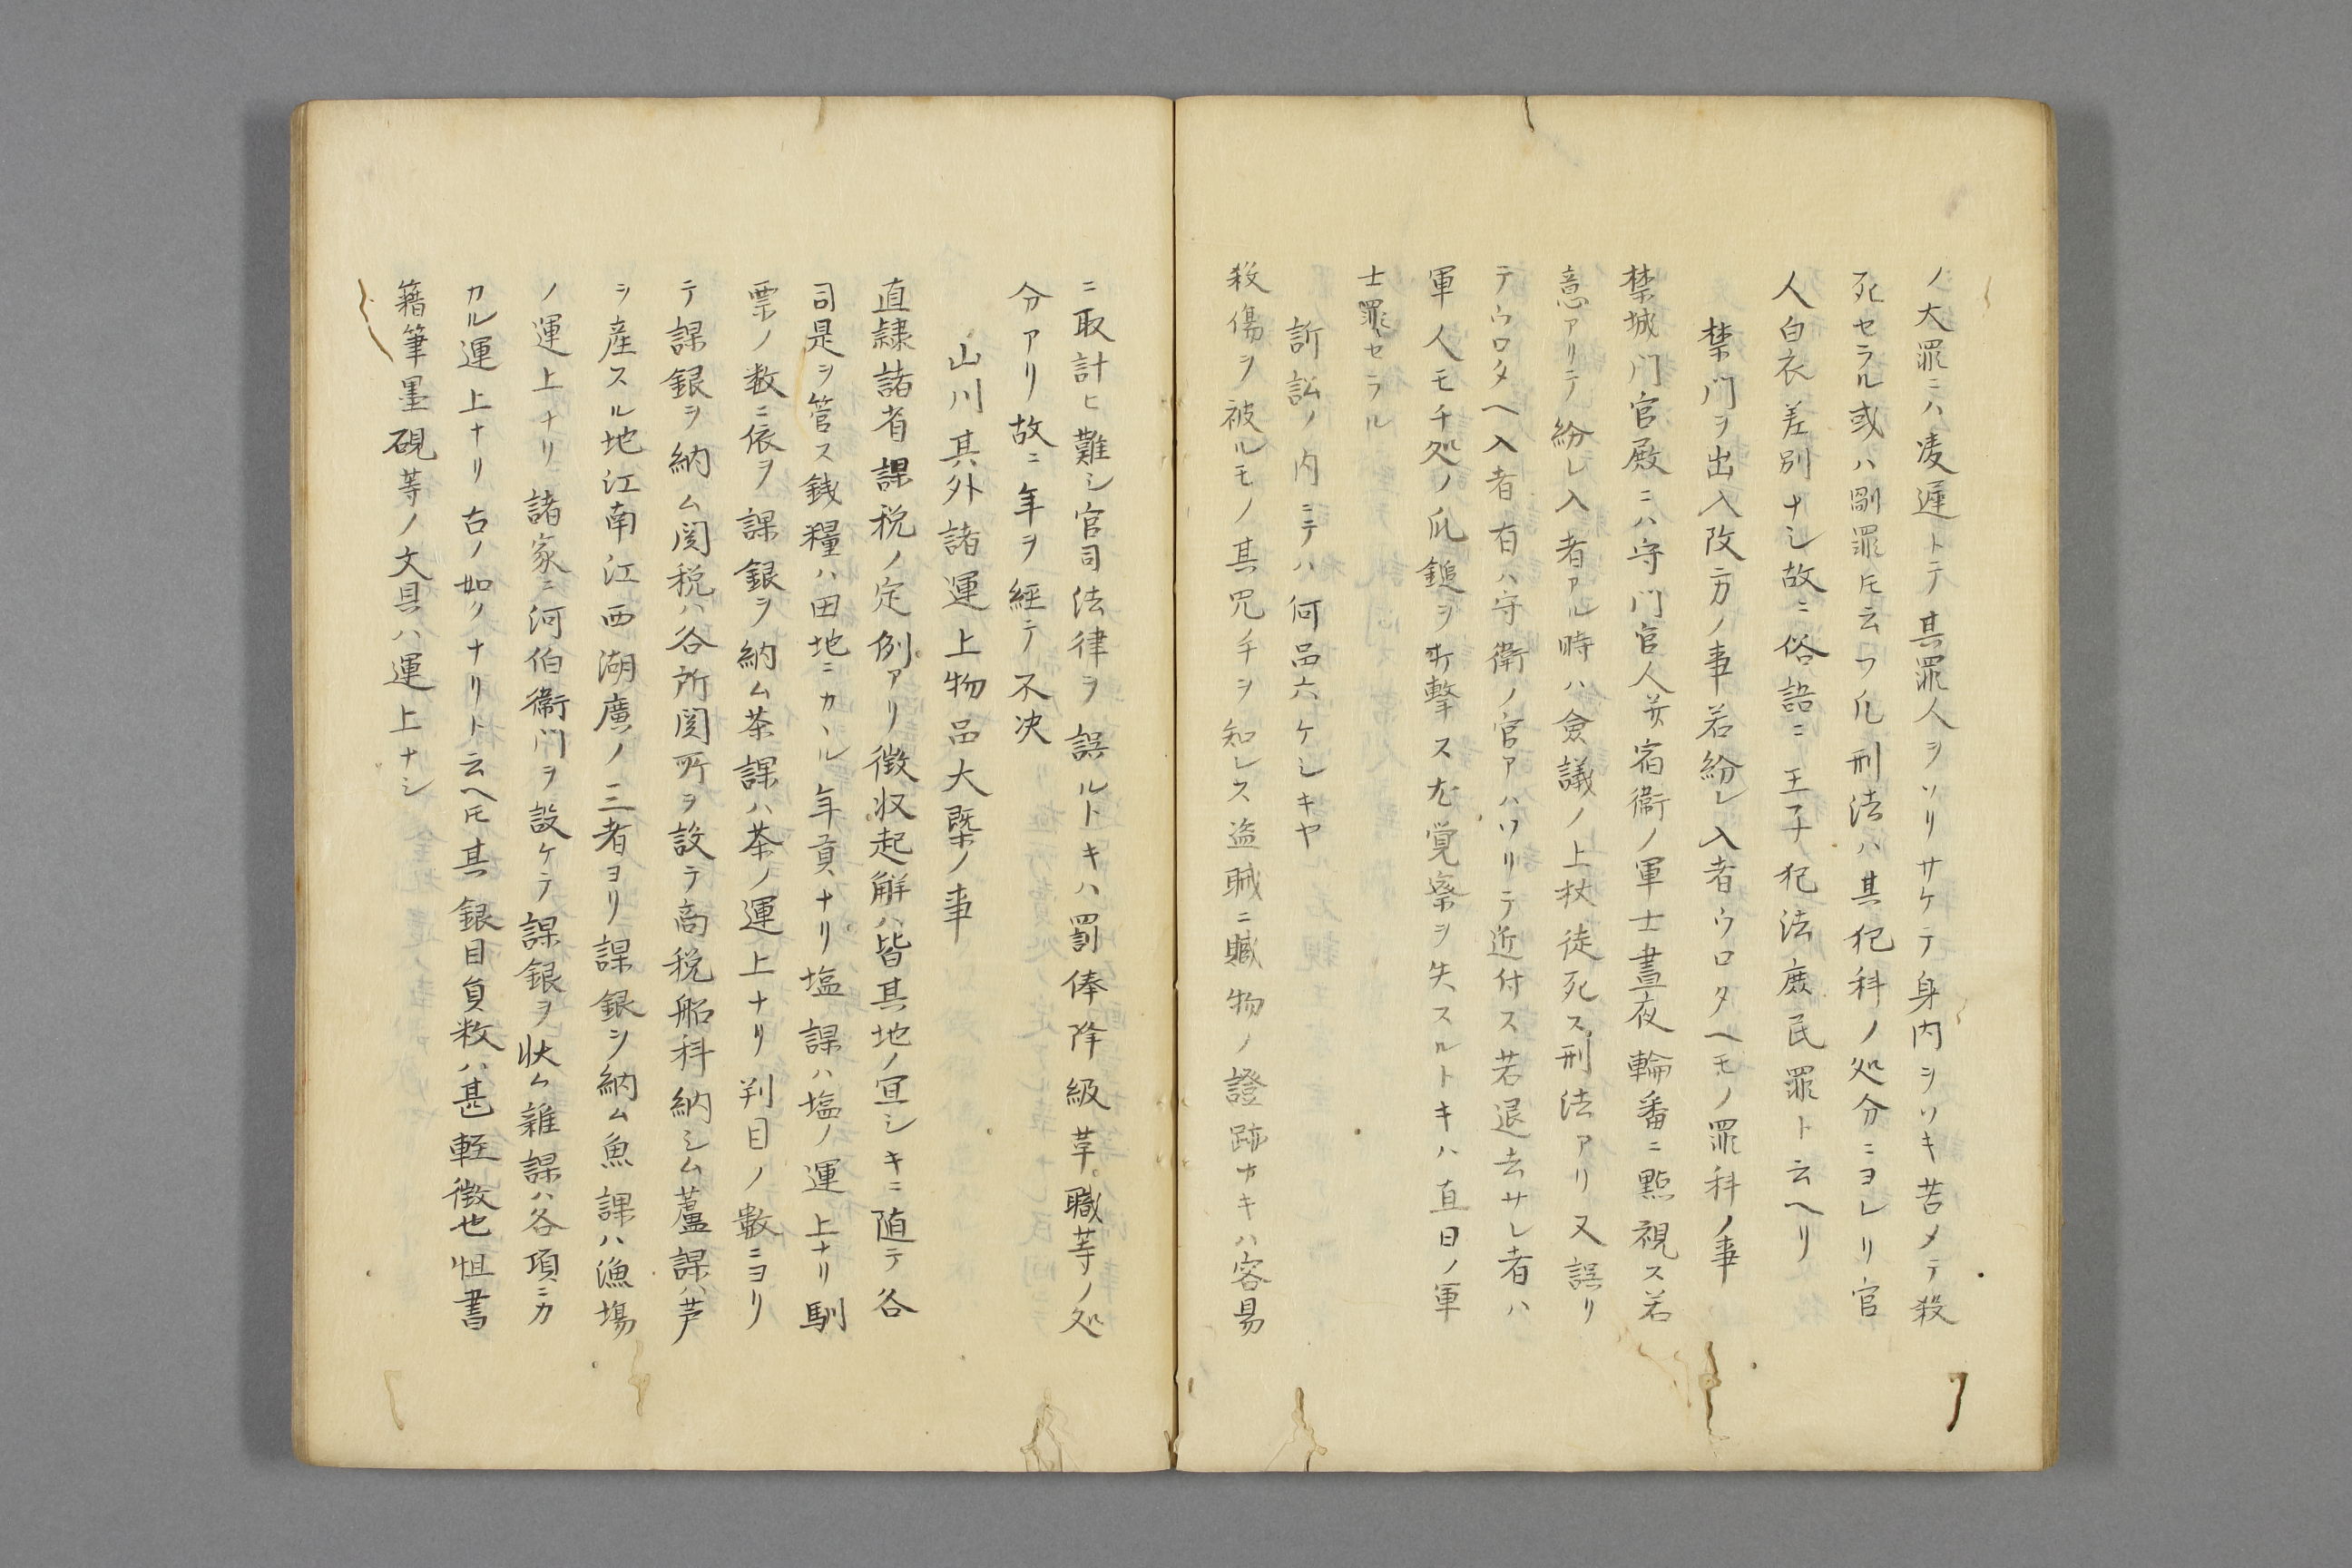 ノ大罪ニハ凌遅トテ其罪人ヲソリサケテ身内ヲソキ苦メテ殺
死セラル或ハ剮罪𪜈云フ凡刑法ハ其犯科ノ処分ニヨレリ官
人白衣差別ナシ故ニ俗語ニ王子犯法庶民罪ト云ヘリ
禁門ヲ出入改方ノ事若紛レ入者ウロタヘモノ罪科ノ事
禁城門官殿ニハ守門官人并宿衞ノ軍士晝夜輪番ニ㸃視ス若
意アリテ紛レ入者アル時ハ僉議ノ上杖徒死ス刑法アリ又誤リ
テウロタヘ入者有ハ守衛ノ官アハリテ近付ス若退去サレ者ハ
軍人モチ処ノ爪鎚ヲ以撃ス尤覚察ヲ失スルトキハ直日ノ軍
士罪セラル
訢訟ノ内ニテハ何品六ケシキヤ
殺傷ヲ被ルモノ其児手ヲ知レス盗賊ニ贓物ノ證跡ナキハ容易
ニ取計ヒ難シ官司法律ヲ誤ルトキハ罰俸降級革職等ノ処
分アリ故ニ年ヲ經テ不決
山川其外諸運上物品大槩ノ事
直隷諸省課税ノ定例アリ徴収起解ハ皆其地ノ冝シキニ随テ各
司是ヲ管ス銭糧ハ田地ニカヽル年貢ナリ塩課ハ塩ノ運上ナリ馴
票ノ数ニ依ヲ課銀ヲ納ム茶課ハ茶ノ運上ナリ判目ノ數ニヨリ
テ課銀ヲ納ム関税ハ各所関所ヲ設テ商税船科納シム蘆課ハ芦
ヲ産スル地江南江西湖廣ノ三者ヨリ課銀ヲ納ム魚課ハ漁場
ノ運上ナリ諸家ニ河伯衞門ヲ設ケテ課銀ヲ状ム雜課ハ各項ニカ
カル運上ナリ右ノ如クナリト云ヘ𪜈其銀目負数ハ甚軽徴也怚書
籍筆墨硯等ノ文具ハ運上ナシ